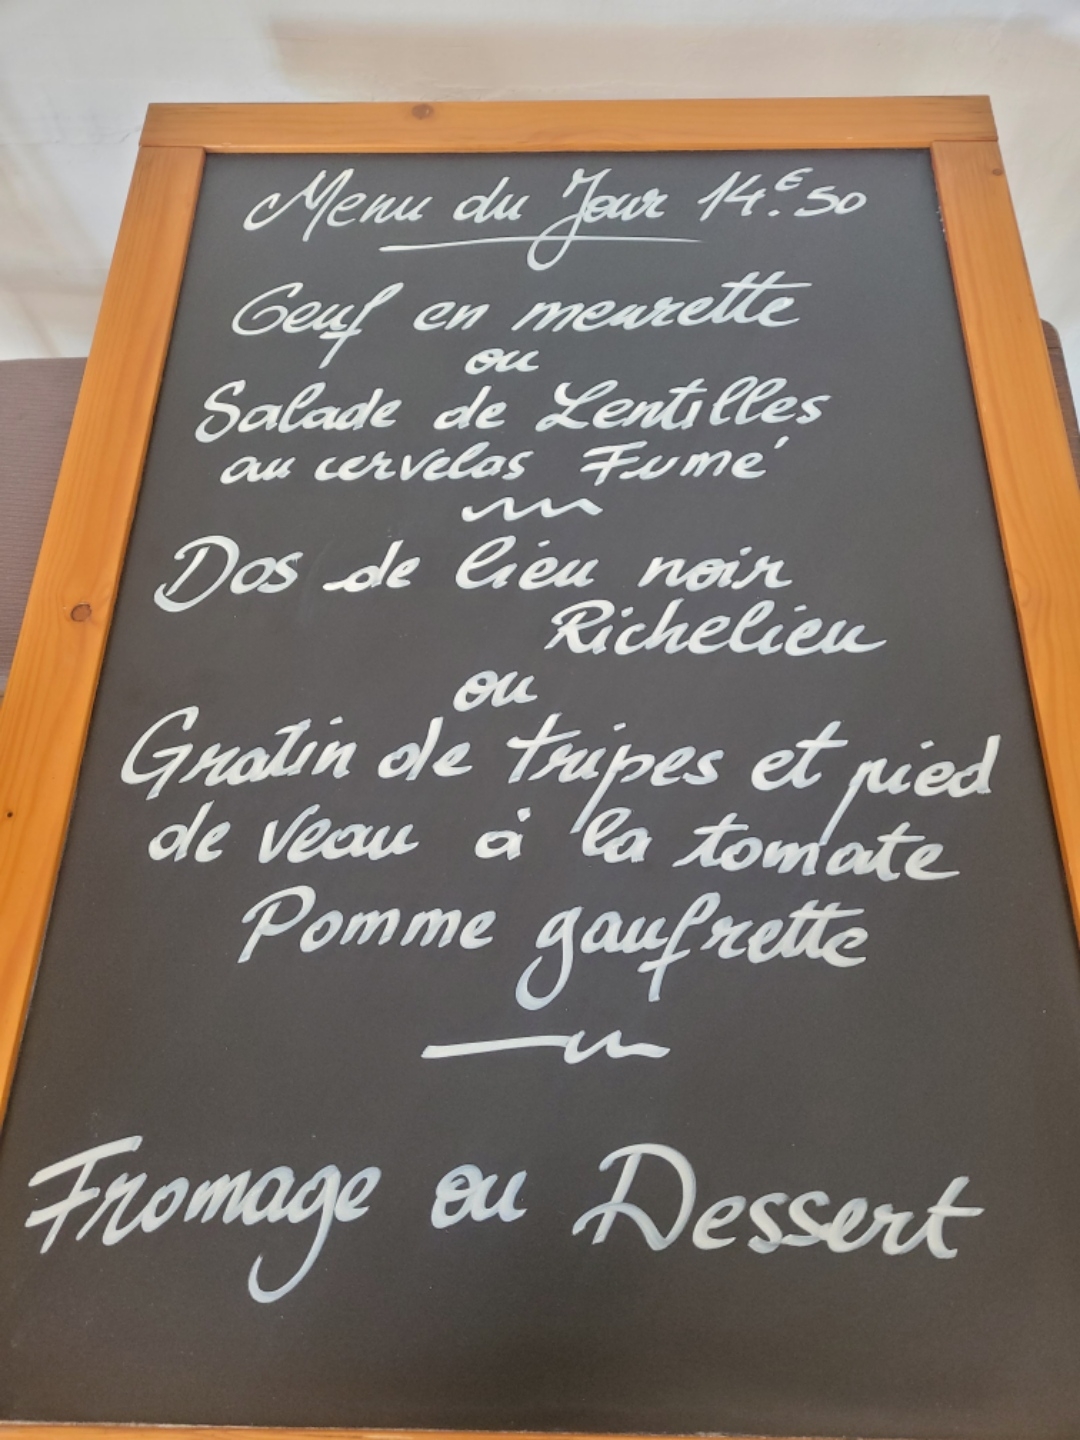 Menu du Jour 14.€50
Oeuf en meurette
ou
Salade de Lentilles
au cervelas Fumé
Dos de lieu noir
Richelieu
ou
Gratin de tripes et pied
de veau à la tomate
Pomme gaufrette
Fromage ou Dessert